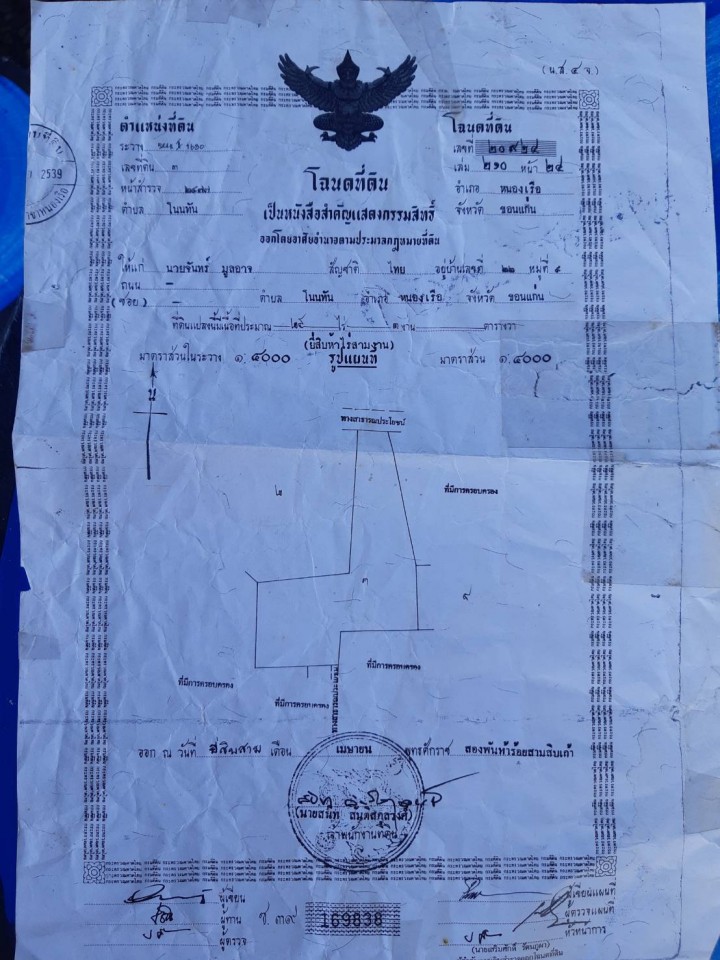 (น.ส.๔ จ.)
ตำแหน่งที่ดิน
ระวาง
เลขที่ดิน ๓
หน้าสำรวจ
ตำบล โนนทัน
2539
โฉนดที่ดิน
เลขที่ ๒๐๙๒๔
เล่ม ๒๑๐ หน้า ๒๔
อำเภอ หนองเรือ
จังหวัด ขอนแก่น
โฉนดที่ดิน
เป็นหนังสือสำคัญแสดงกรรมสิทธิ์
ออกโดยอาศัยอำนาจตามประมวลกฎหมายที่ดิน
ให้แก่ นายจันทร์ มูลอาจ สัญชาติ ไทย อยู่บ้านเลขที่ ๒๒ หมู่ที่
ถนน –
(ซอย) – ตำบล โนนทัน อำเภอ หนองเรือ จังหวัด ขอนแก่น
ที่ดินแปลงนี้มีเนื้อที่ประมาณ ๒๕ ไร่ ๓ งาน ตารางวา
(ยี่สิบห้าไร่สามงาน)
มาตราส่วนในระวาง ๑:๔๐๐๐ รูปแผนที่ มาตราส่วน ๑:๔๐๐๐
น
ทางสาธารณประโยชน์
๒
ที่มีการครอบครอง
๓
๙
ที่มีการครอบครอง
ที่มีการครอบครอง
ที่มีการครอบครอง
ทางสาธารณประโยชน์
ออก ณ วันที่ ยี่สิบสาม เดือน เมษายน พุทธศักราช สองพันห้าร้อยสามสิบเก้า
(นายสนิท สันติสกุลวงศ์)
เจ้าพนักงานที่ดิน
ผู้เขียน
ผู้ทาน
ผู้ตรวจ
ช. ๓๙
169838
ผู้เขียนแผนที่
ผู้ตรวจแผนที่
หัวหน้าการ